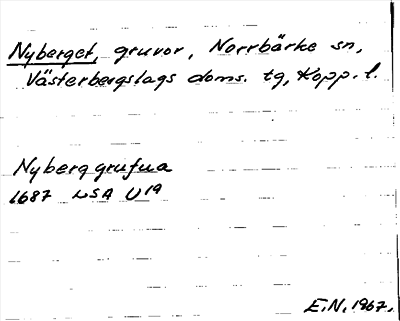 Nyberget, gruvor, Norrbärke sn,
Västerbergslags doms. tg, Kopp. l.
Nyberggrufua
1687 LSA U19
E.N. 1967.